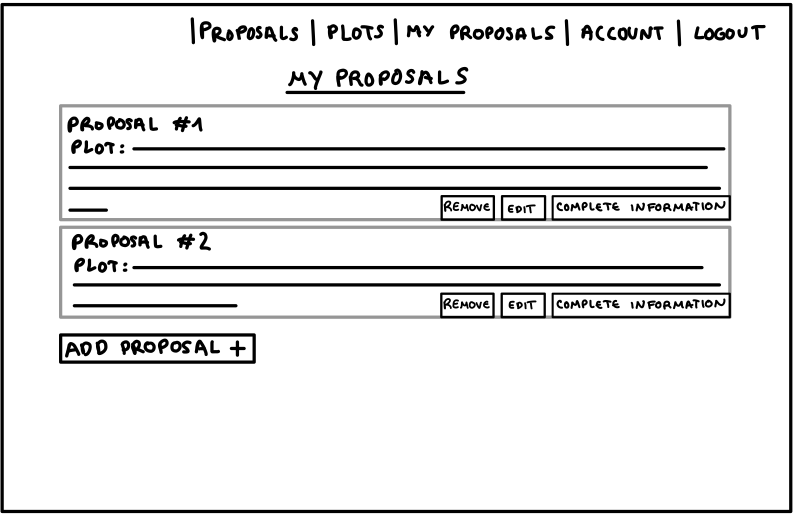 |PROPOSALS | PLOTS | MY PROPOSALS | ACCOUNT | LOGOUT
MY PROPOSALS
PROPOSAL #1
PLOT:
REMOVE EDIT COMPLETE INFORMATION
PROPOSAL #2
PLOT:
REMOVE EDIT COMPLETE INFORMATION
ADD PROPOSAL +